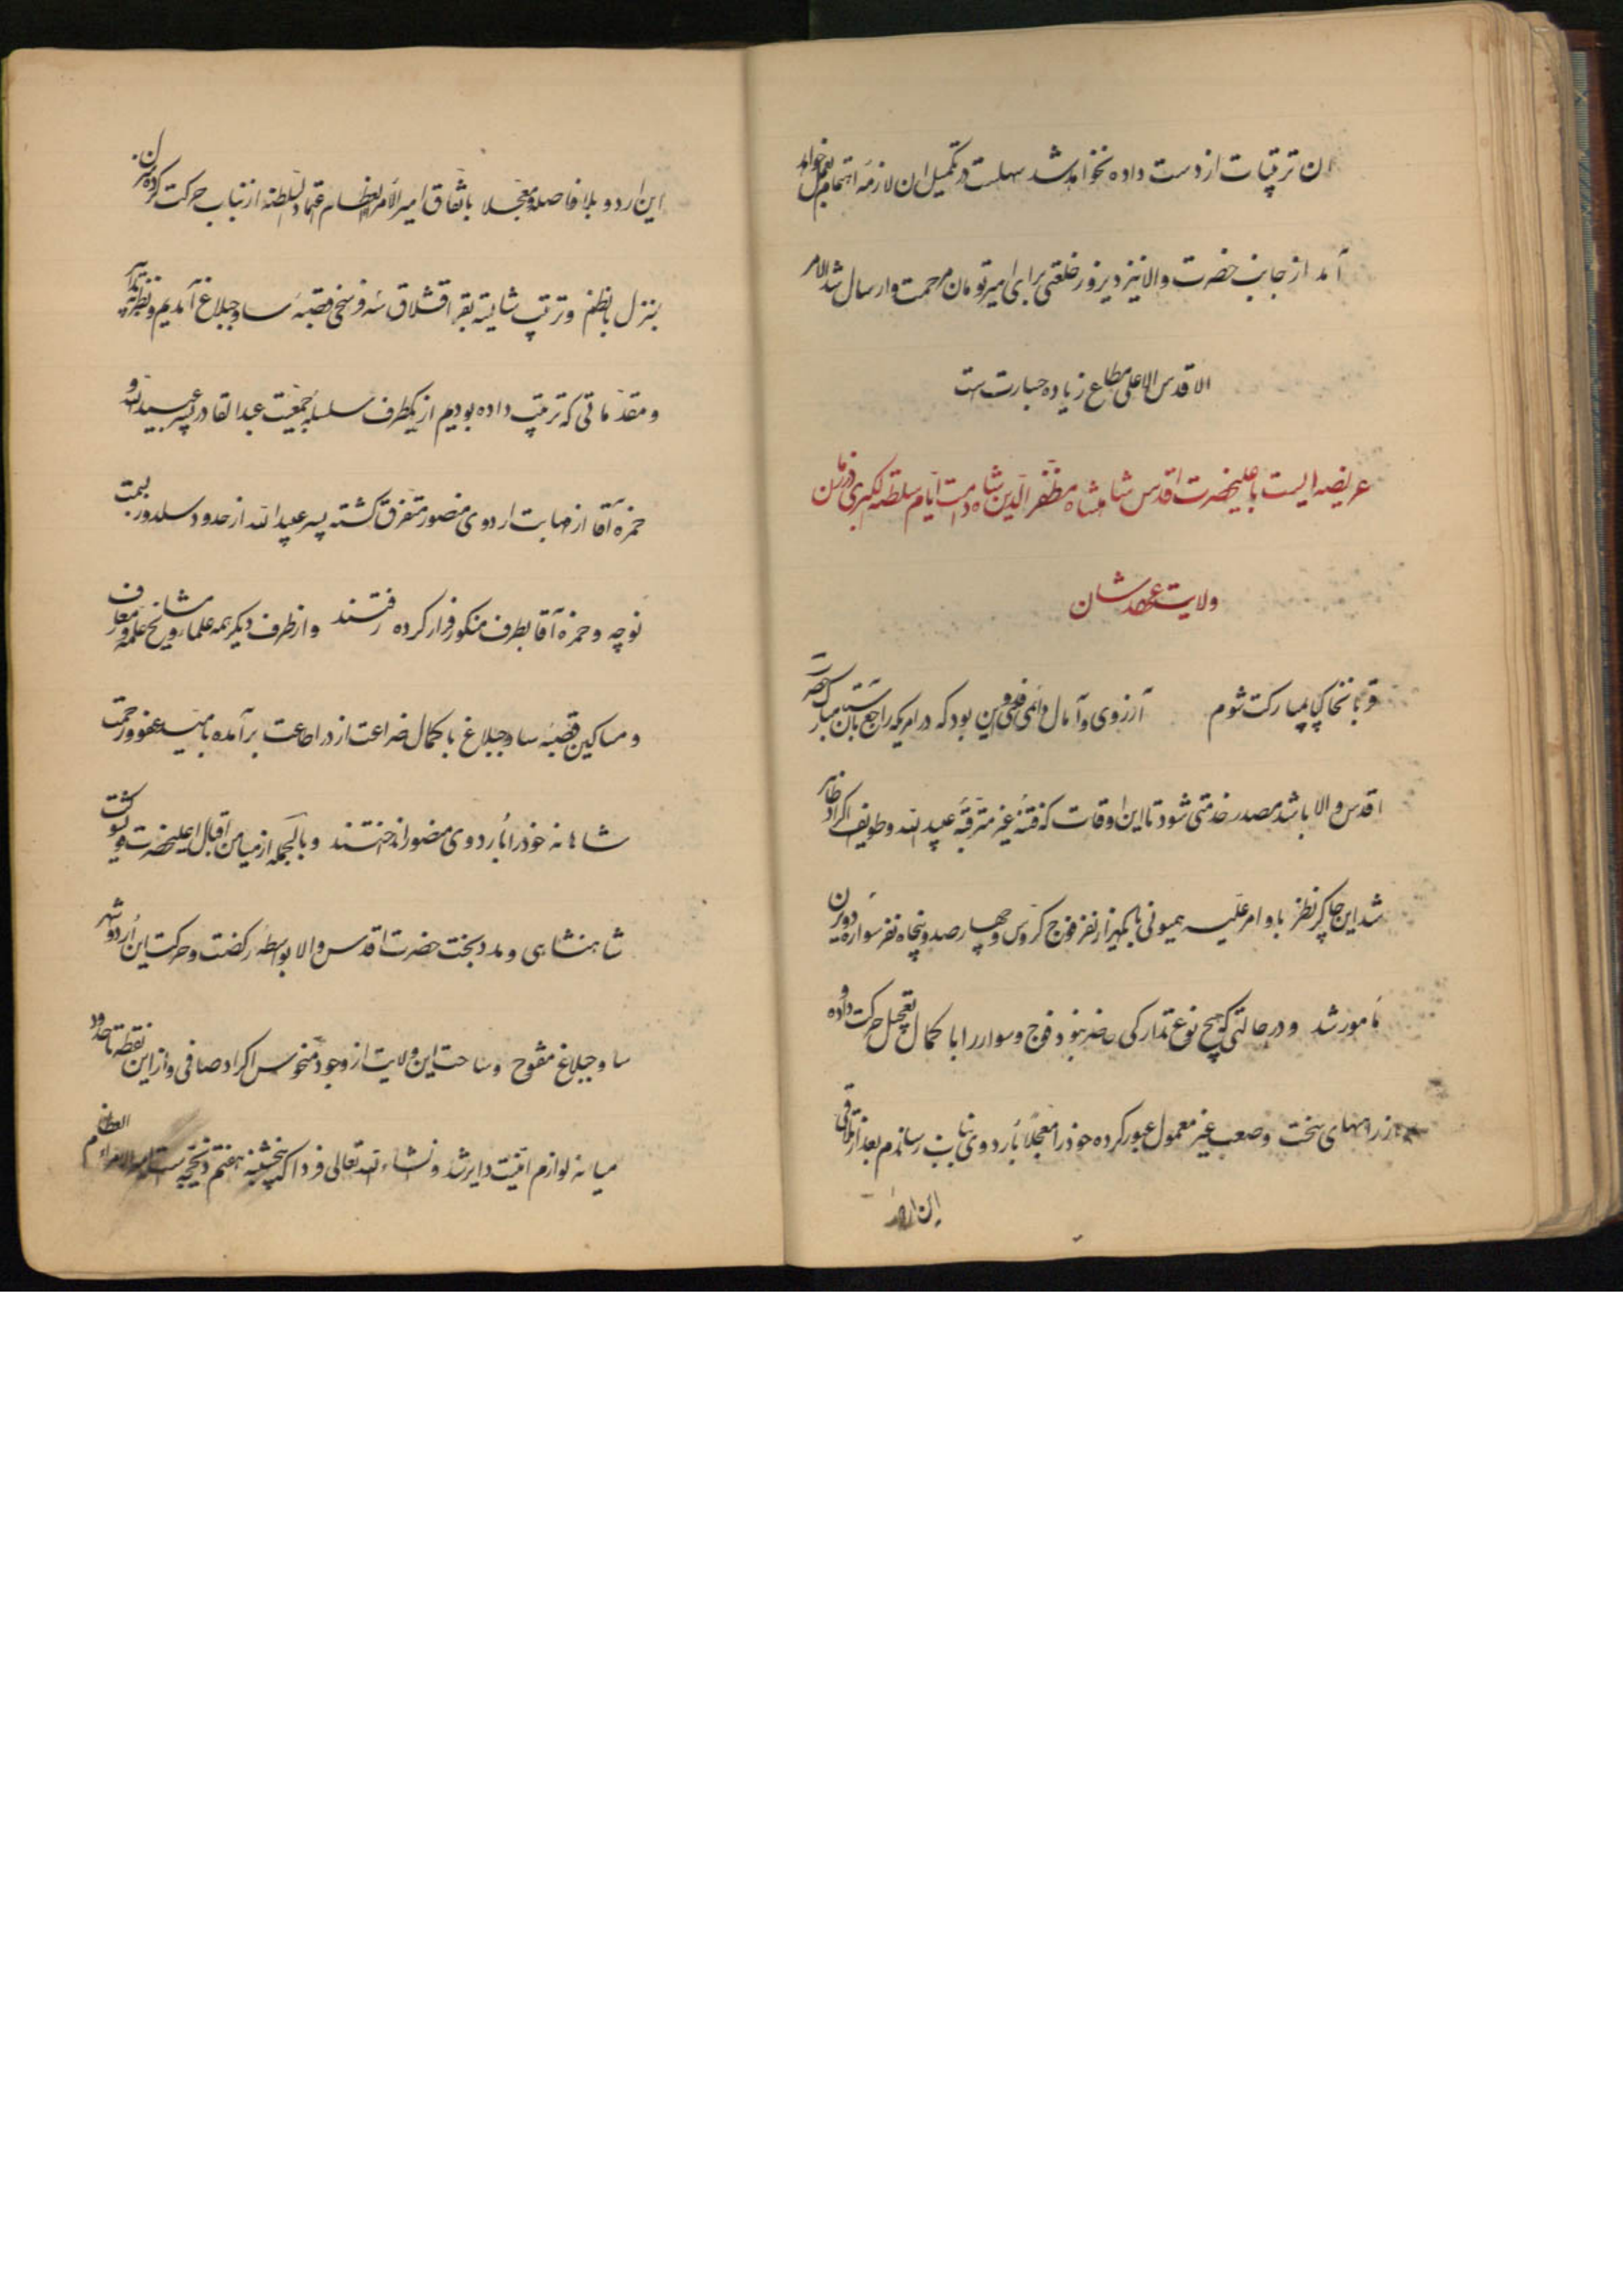 ان ترتیبات از دست داده نخواهد شد سهلست در تکمیل ان لازمه اهتمام بعمل خواهد
آمد از جانب حضرت والا نیز دیروز خلعتی برای امیرتومان مرحمت و ارسال شد الامر
الاقدس الاعلی مطاع زیاده جسارت است
عریضه ایست باعلیحضرت اقدس شاهنشاه مظفر الدین شاه دامت ایام سلطنه الکبری در زمان
ولایت عهدشان
قربانخاکپایمبارکت شوم آرزوی و آمال دائمی فدوی این بود که در امریکه راجع بان آستان مبارک حضرت
اقدس والا باشد مصدر خدمتی شود تا این اوقات که فتنه غیر مترقبه عبیدالله و طوایف اکراد ظاهر
شد این چاکر نظر باوامر علیه همیونی با یکهزار نفر فوج کروس و چهارصد و پنجاه نفر سواره دویرن
مامور شد و در حالتی که هیچ نوع تدارکی حاضر نبود فوج و سوار را با کمال تعجیل حرکت داده و
از راههای سخت و صعب غیر معمول عبور کرده خود را معجلاً باردوی بناب رساندم بعد از تلاقی
این اردو
این اردو بلا فاصله و معجلا باتفاق امیر الامراء العظام اعتماد السلطنه از بناب حرکت کرده
بنزل بانظم و ترتیب شایسته بقرا قشلاق سه فرسخی قصبه ساوجبلاغ آمدیم و نظر به تدابیر
و مقدماتی که ترتیب داده بودیم از یکطرف سلسله جمعیت عبدالقادر پسر عبیدالله و
حمزه آقا از مهابت اردوی منصور متفرق گشته پسر عبیدالله از حدود سلدوز بسمت
نوچه و حمزه آقا بطرف منکور فرار کرده رفتند و از طرف دیگر همه علما و مشایخ و معارف
و مساکین قصبه ساوجبلاغ با کمال ضراعت از در اطاعت برآمده بامید عفو و رحمت
شاهانه خود را باردوی منصور انداختند و بالجمله از میامن اقبال اعلیحضرت قویشوکت
شاهنشاهی و مدد بخت حضرت اقدس والا بواسطه رکضت و حرکت این اردو شهر
ساوجبلاغ مفتوح و ساحت این ولایت از وجود منحوس اکراد صافی و از این نقطه تا حدود
میانه لوازم امنیت دایر شد و انشاءالله تعالی فردا که پنجشنبه هفتم ذیحجه است امیر الامراء العظام